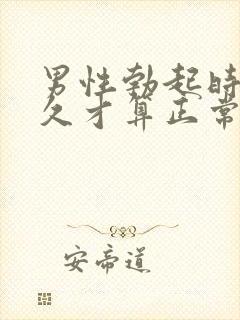 男性勃起时
久才算正常
安帝道